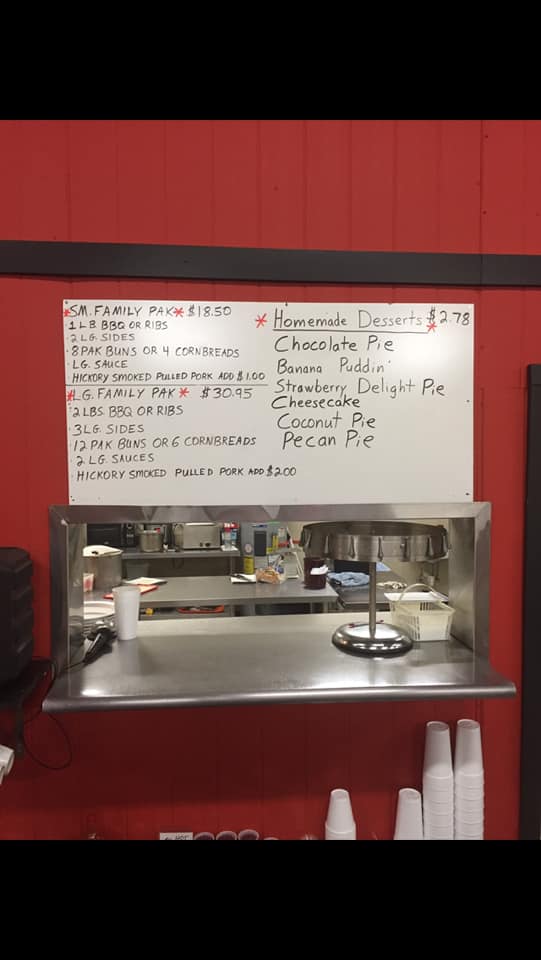 *SM. FAMILY PAK* $18.50
·1 LB. BBQ OR RIBS
·2 LG. SIDES
·8 PAK BUNS OR 4 CORNBREADS
·LG. SAUCE
HICKORY SMOKED PULLED PORK ADD $1.00
*LG. FAMILY PAK* $30.95
·2 LBS. BBQ OR RIBS
·3 LG. SIDES
·12 PAK BUNS OR 6 CORNBREADS
·2 LG. SAUCES
·HICKORY SMOKED PULLED PORK ADD $2.00
* Homemade Desserts $2.78
*
Chocolate Pie
Banana Puddin'
Strawberry Delight Pie
Cheesecake
Coconut Pie
Pecan Pie
HOT